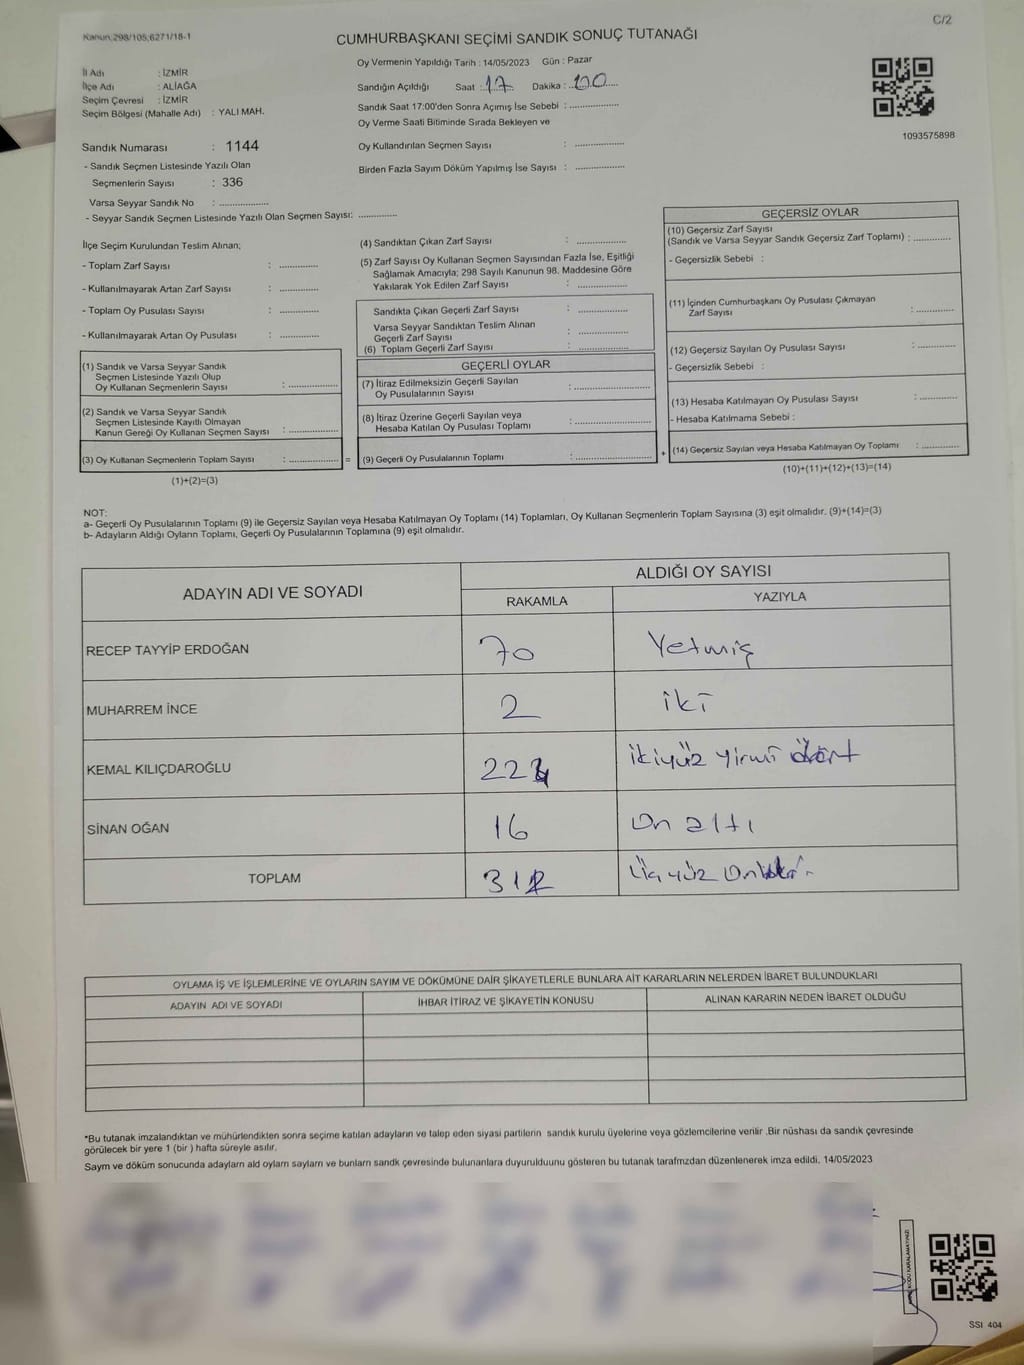 C/2
Kanun;298/105;6271/18-1
CUMHURBAŞKANI SEÇİMİ SANDIK SONUÇ TUTANAĞI
İl Adı : İZMİR
İlçe Adı : ALİAĞA
Seçim Çevresi : İZMİR
Seçim Bölgesi (Mahalle Adı) : YALI MAH.
Sandık Numarası : 1144
- Sandık Seçmen Listesinde Yazılı Olan
Seçmenlerin Sayısı : 336
Varsa Seyyar Sandık No : ..................
- Seyyar Sandık Seçmen Listesinde Yazılı Olan Seçmen Sayısı: ..............
Oy Vermenin Yapıldığı Tarih : 14/05/2023 Gün : Pazar
Sandığın Açıldığı Saat : 17 Dakika : 00
Sandık Saat 17:00'den Sonra Açımış İse Sebebi : ..................
Oy Verme Saati Bitiminde Sırada Bekleyen ve
Oy Kullandırılan Seçmen Sayısı : ..................
Birden Fazla Sayım Döküm Yapılmış İse Sayısı : ..................
1093575898
İlçe Seçim Kurulundan Teslim Alınan;
- Toplam Zarf Sayısı : ..............
- Kullanılmayarak Artan Zarf Sayısı : ..............
- Toplam Oy Pusulası Sayısı : ..............
- Kullanılmayarak Artan Oy Pusulası : ..............
(1) Sandık ve Varsa Seyyar Sandık
Seçmen Listesinde Yazılı Olup
Oy Kullanan Seçmenlerin Sayısı : ..................
(2) Sandık ve Varsa Seyyar Sandık
Seçmen Listesinde Kayıtlı Olmayan
Kanun Gereği Oy Kullanan Seçmen Sayısı : ..................
(3) Oy Kullanan Seçmenlerin Toplam Sayısı : .................. =
(1)+(2)=(3)
(4) Sandıktan Çıkan Zarf Sayısı : ..................
(5) Zarf Sayısı Oy Kullanan Seçmen Sayısından Fazla İse, Eşitliği
Sağlamak Amacıyla; 298 Sayılı Kanunun 98. Maddesine Göre
Yakılarak Yok Edilen Zarf Sayısı : ..................
Sandıkta Çıkan Geçerli Zarf Sayısı : ..................
Varsa Seyyar Sandıktan Teslim Alınan
Geçerli Zarf Sayısı : ..................
(6) Toplam Geçerli Zarf Sayısı : ..................
GEÇERLİ OYLAR
(7) İtiraz Edilmeksizin Geçerli Sayılan
Oy Pusulalarının Sayısı : ..................
(8) İtiraz Üzerine Geçerli Sayılan veya
Hesaba Katılan Oy Pusulası Toplamı : ..................
(9) Geçerli Oy Pusulalarının Toplamı : .................. +
GEÇERSİZ OYLAR
(10) Geçersiz Zarf Sayısı
(Sandık ve Varsa Seyyar Sandık Geçersiz Zarf Toplamı) : ..............
- Geçersizlik Sebebi :
(11) İçinden Cumhurbaşkanı Oy Pusulası Çıkmayan
Zarf Sayısı : ..............
(12) Geçersiz Sayılan Oy Pusulası Sayısı : ..............
- Geçersizlik Sebebi :
(13) Hesaba Katılmayan Oy Pusulası Sayısı : ..............
- Hesaba Katılmama Sebebi :
(14) Geçersiz Sayılan veya Hesaba Katılmayan Oy Toplamı : ..............
(10)+(11)+(12)+(13)=(14)
NOT:
a- Geçerli Oy Pusulalarının Toplamı (9) ile Geçersiz Sayılan veya Hesaba Katılmayan Oy Toplamı (14) Toplamları, Oy Kullanan Seçmenlerin Toplam Sayısına (3) eşit olmalıdır. (9)+(14)=(3)
b- Adayların Aldığı Oyların Toplamı, Geçerli Oy Pusulalarının Toplamına (9) eşit olmalıdır.
ADAYIN ADI VE SOYADI ALDIĞI OY SAYISI
RAKAMLA YAZIYLA
RECEP TAYYİP ERDOĞAN 70 Yetmiş
MUHARREM İNCE 2 iki
KEMAL KILIÇDAROĞLU 224 ikiyüz yirmi dört
SİNAN OĞAN 16 On altı
TOPLAM 312 Üçyüz Oniki
OYLAMA İŞ VE İŞLEMLERİNE VE OYLARIN SAYIM VE DÖKÜMÜNE DAİR ŞİKAYETLERLE BUNLARA AİT KARARLARIN NELERDEN İBARET BULUNDUKLARI
ADAYIN ADI VE SOYADI İHBAR İTİRAZ VE ŞİKAYETİN KONUSU ALINAN KARARIN NEDEN İBARET OLDUĞU
*Bu tutanak imzalandıktan ve mühürlendikten sonra seçime katılan adayların ve talep eden siyasi partilerin sandık kurulu üyelerine veya gözlemcilerine verilir .Bir nüshası da sandık çevresinde
görülecek bir yere 1 (bir ) hafta süreyle asılır.
Sayım ve döküm sonucunda adayların ald oyların sayları ve bunların sandk çevresinde bulunanlara duyurulduunu gösteren bu tutanak tarafımzdan düzenlenerek imza edildi. 14/05/2023
SSI 404